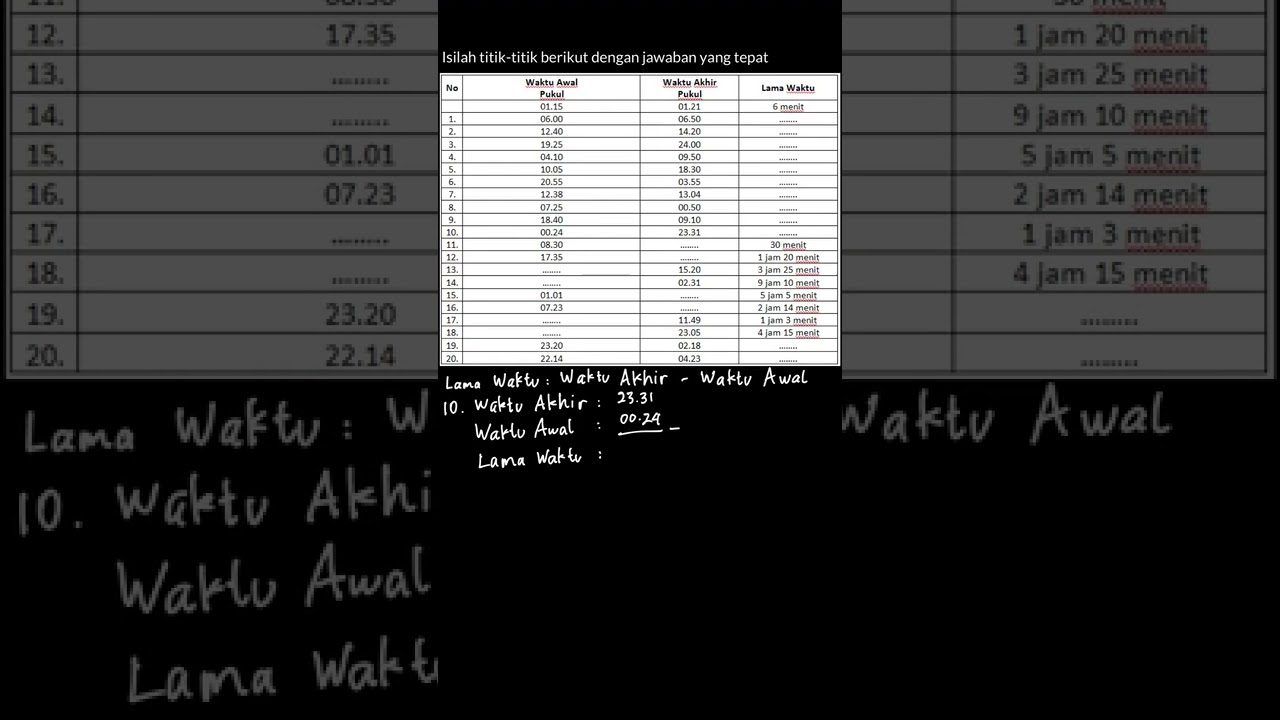 Isilah titik-titik berikut dengan jawaban yang tepat
No Waktu Awal Pukul Waktu Akhir Pukul Lama Waktu
01.15 01.21 6 menit
1. 06.00 06.50 ........
2. 12.40 14.20 ........
3. 19.25 24.00 ........
4. 04.10 09.50 ........
5. 10.05 18.30 ........
6. 20.55 03.55 ........
7. 12.38 13.04 ........
8. 07.25 00.50 ........
9. 18.40 09.10 ........
10. 00.24 23.31 ........
11. 08.30 ........ 30 menit
12. 17.35 ........ 1 jam 20 menit
13. ........ 15.20 3 jam 25 menit
14. ........ 02.31 9 jam 10 menit
15. 01.01 ........ 5 jam 5 menit
16. 07.23 ........ 2 jam 14 menit
17. ........ 11.49 1 jam 3 menit
18. ........ 23.05 4 jam 15 menit
19. 23.20 02.18 ........
20. 22.14 04.23 ........
Lama Waktu : Waktu Akhir - Waktu Awal
10. Waktu Akhir : 23.31
Waktu Awal : 00.24 -
Lama Waktu :